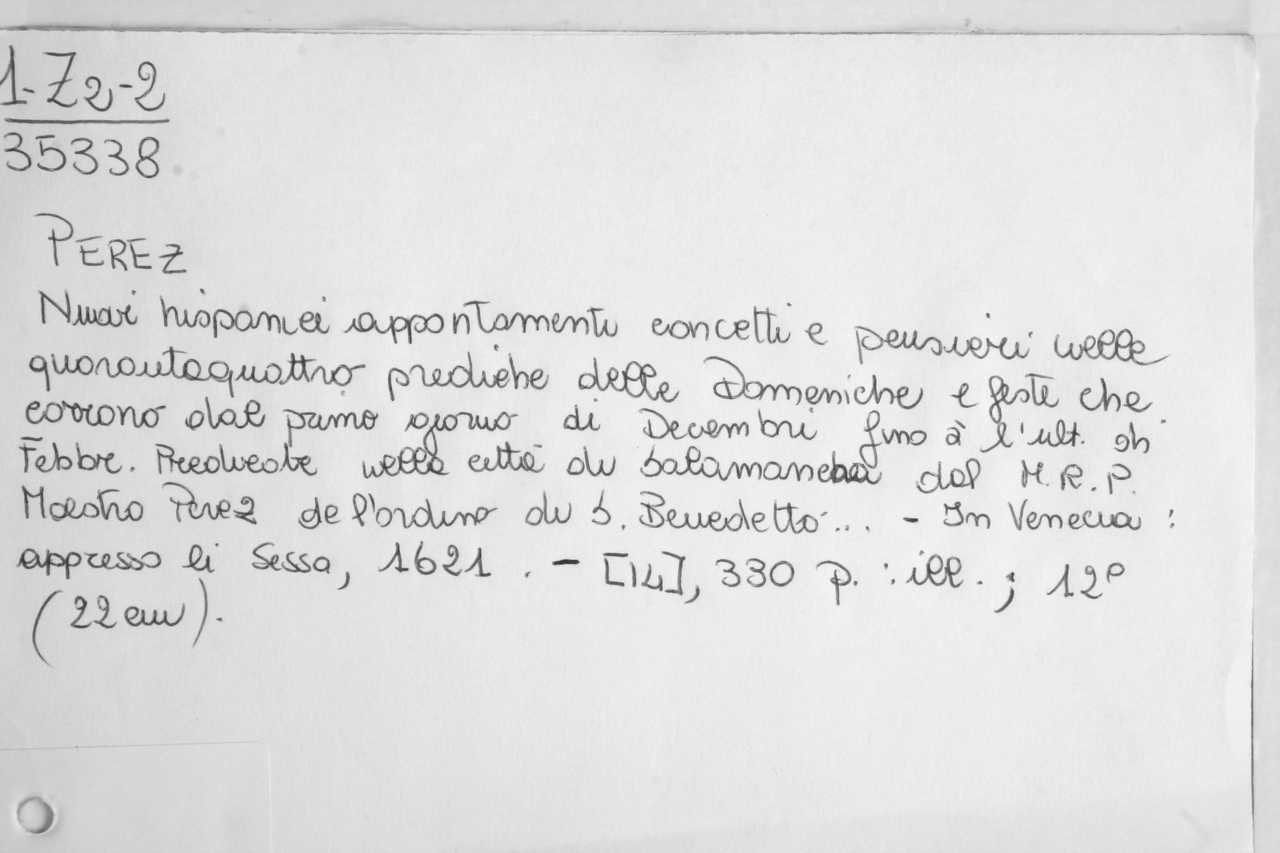 1-Z2-2
35338
PEREZ
Nuovi hispanici appontamenti concetti e pensieri nelle
quarantaquattro prediche delle Domeniche e feste che
corrono dal primo giorno di Decembri fino à l'ult. di
Febbre. Predicate nella città di Salamancha dal M.R.P.
Maestro Perez de l'ordine di S. Benedetto... - In Venecia :
appresso li Sessa, 1621. - [14], 330 p. : ill. ; 12º
(22 cm).